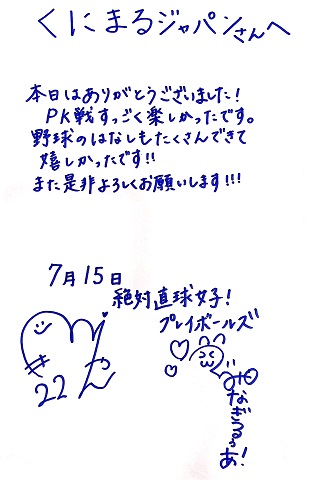 くにまるジャパンさんへ
本日はありがとうございました!
PK戦すっごく楽しかったです。
野球のはなしもたくさんできて
嬉しかったです!!
また是非よろしくお願いします!!!
7月15日
絶対直球女子!
プレイボールズ
22